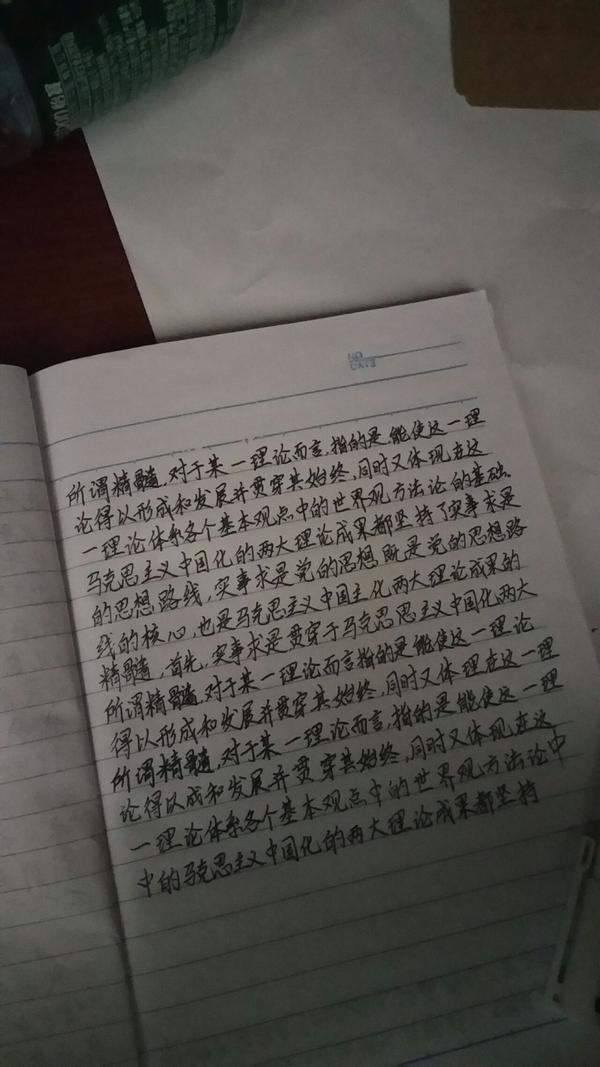 NO
DATE
所谓精髓，对于某一理论而言，指的是能使这一理
论得以形成和发展并贯穿其始终，同时又体现在这
一理论体系各个基本观点中的世界观方法论的基础。
马克思主义中国化的两大理论成果都坚持了实事求是
的思想路线，实事求是党的思想既是党的思想路
线的核心，也是马克思主义中国主化两大理论成果的
精髓，首先，实事求是贯穿于马克思思主义中国化两大
所谓精髓，对于某一理论而言指的是能使这一理论
得以形成和发展并贯穿其始终，同时又体理在这一理
所谓精髓，对于某一理论而言，指的是能使这一理
论得以成和发展并贯穿其始终，同时又体现在这
一理论体系各个基本观点中的世界观方法论中
中的马克思主义中国化的两大理论成果都坚持